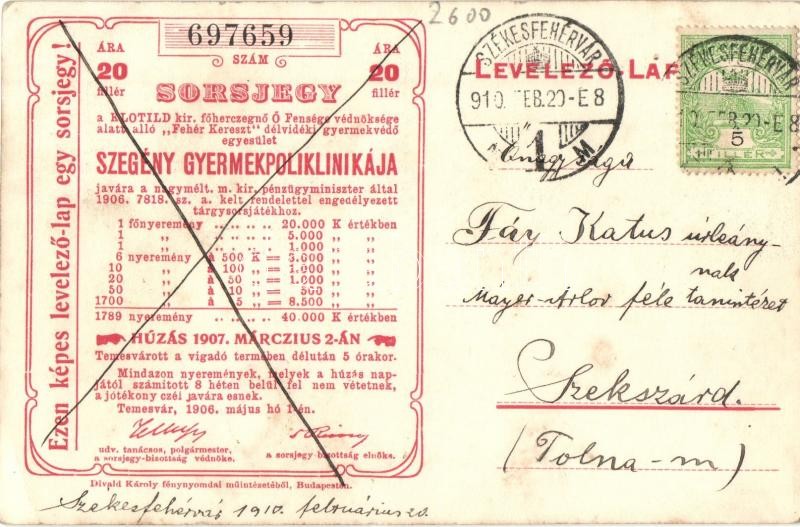 2600
Ezen képes levelező-lap egy sorsjegy!
697659
SZÁM
ÁRA
20
fillér
ÁRA
20
fillér
SORSJEGY
a KLOTILD kir. főherczegnő Ő Fensége védnöksége
alatt álló „Fehér Kereszt" délvidéki gyermekvédő
egyesület
SZEGÉNY GYERMEKPOLIKLINIKÁJA
javára a nagymélt. m. kir. pénzügyminiszter által
1906. 7818. sz. a. kelt rendelettel engedélyezett
tárgysorsjátékhoz.
1 főnyeremény .. .. .. .. 20.000 K értékben
1 „ .. .. .. .. 5.000 „ „
1 „ .. .. .. .. 1.000 „ „
6 nyeremény à 500 K = 3.000 „ „
10 „ à 100 „ = 1.000 „ „
20 „ à 50 „ = 1.000 „ „
50 „ à 10 „ = 500 „ „
1700 „ à 5 „ = 8.500 „ „
1789 nyeremény .. .. .. .. 40.000 K értékben
HÚZÁS 1907. MÁRCZIUS 2-ÁN
Temesvárott a vigadó termében délután 5 órakor.
Mindazon nyeremények, melyek a húzás nap-
jától számított 8 héten belül fel nem vétetnek,
a jótékony czél javára esnek.
Temesvár, 1906. május hó 1-én.
udv. tanácsos, polgármester,
a sorsjegy-bizottság védnöke.
a sorsjegy-bizottság elnöke.
Divald Károly fénynyomdai műintézetéből, Budapesten.
Székesfehérvár 1910. február 20.
LEVELEZŐ-LAP
SZÉKESFEHÉRVÁR
910. FEB. 20-E 8
1
M
SZÉKESFEHÉRVÁR
FEB. 20-E 8
5
FILLÉR
Fáy Katus úrleány-
nak
Mayer-Arlov féle tanintézet
Szekszárd.
(Tolna-m)